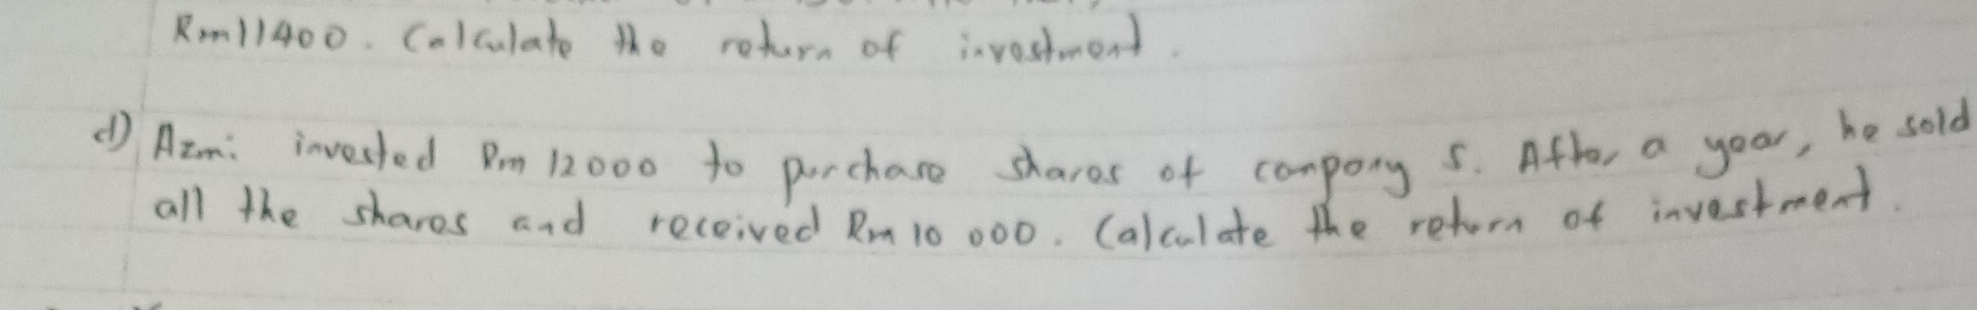 Rm11400. Calculate the return of investment.
d) Azmi invested Rm 12000 to purchase shares of company S. After a year, he sold
all the shares and received Rm 10 000. Calculate the return of investment.